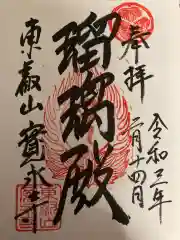 奉拝
令和三年
二月十四日
瑠璃殿
東叡山寳永寺